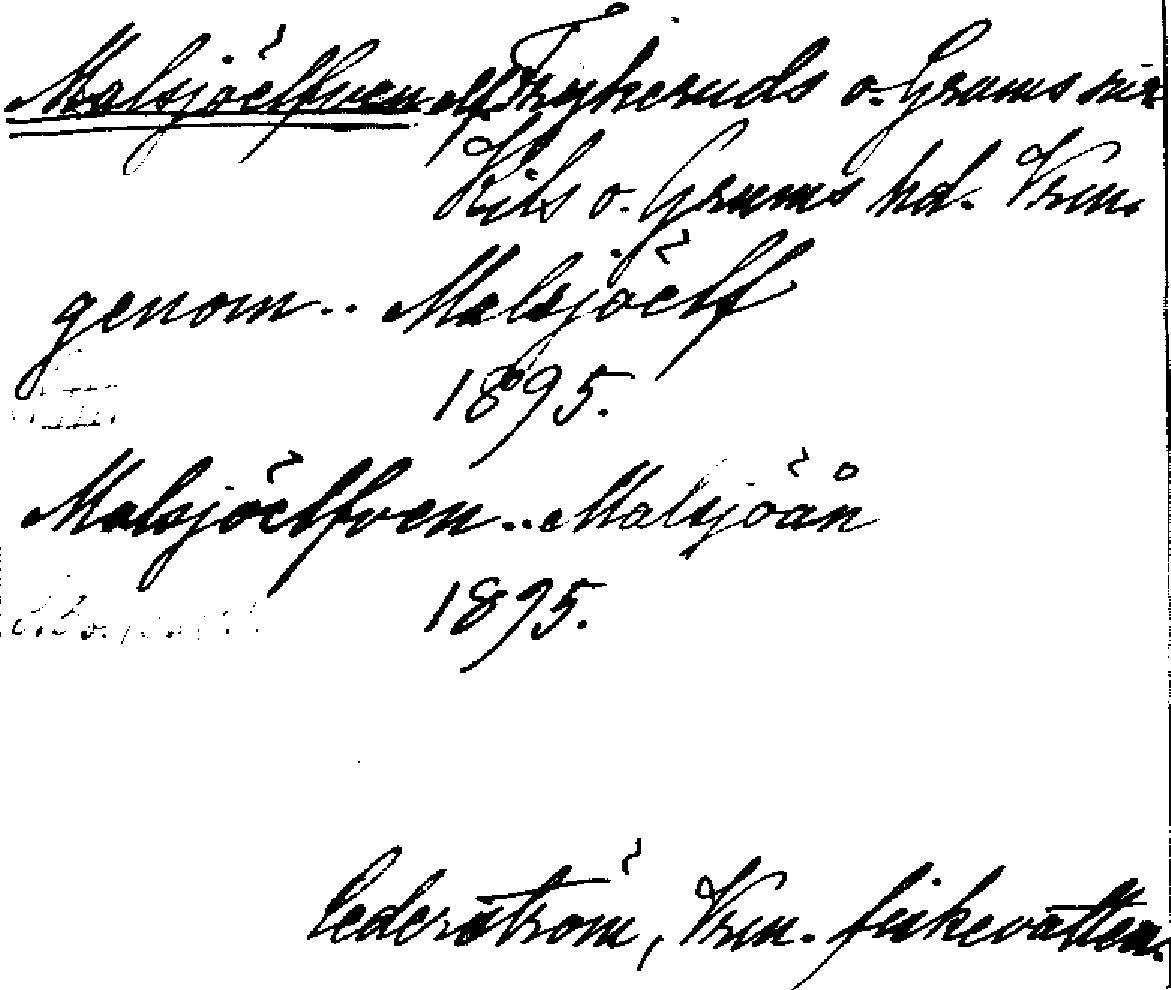 Malsjöelfven elf Frykeruds o. Grums snr
Kils o. Grums hd. Vrm.
genom.. Malsjöelf
1895.
Malsjöelfven.. Malsjöån
1895.
Cederström, Vrm. fiskevatten.